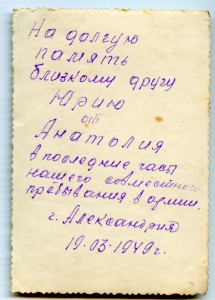 На долгую
память
близкому другу
Юрию
от
Анатолия
в последние часы
нашего совместного
пребывания в армии.
г. Александрия
19.03.1949г.